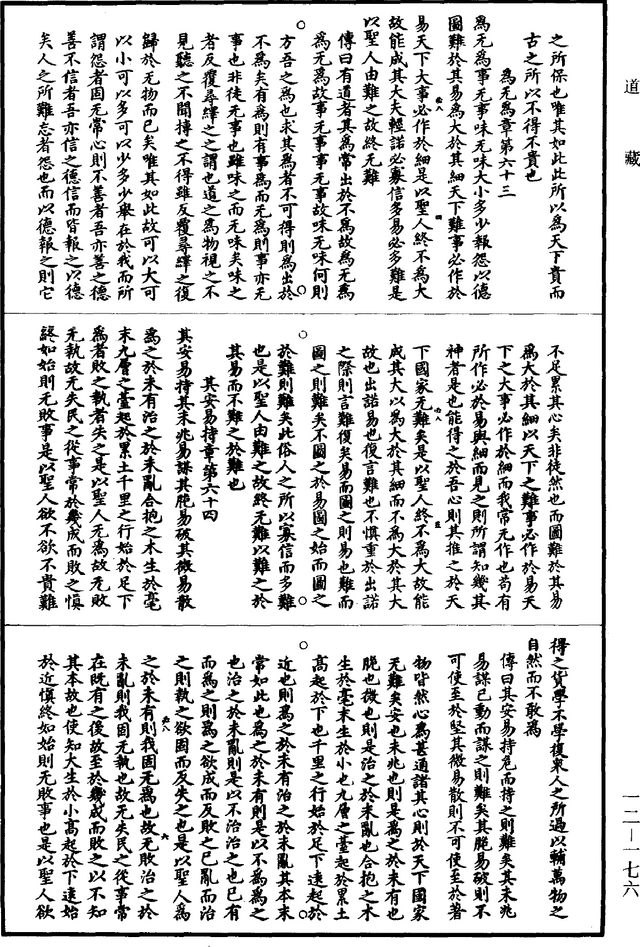 之所保也唯其如此此所以為天下貴而
古之所以不得不貴也
為无為章第六十三
為无為事无事味无味大小多少報怨以德
圖難於其易為大於其細天下難事必作於
易天下大事必作於細是以聖人終不為大
故能成其大夫輕諾必寡信多易必多難是
以聖人由難之故終无難
傳曰有道者其為常出於不為故為无為
為无為故事无事事无事故味无味何則
方吾之為也求其為者不可得則為出於
不為矣有為則有事為而无為則事亦无
事也非徒无事也雖味之而无味矣味之
者反覆尋繹之之謂也道之為物視之不
見聽之不聞摶之不得雖反覆尋繹之復
歸於无物而已矣唯其如此故可以大可
以小可以多可以少多少舉在於我而所
謂怨者固无常心則不善者吾亦善之德
善不信者吾亦信之德信而皆報之以德
矣人之所難忘者怨也而以德報之則它
不足累其心矣非徒然也而圖難於其易
為大於其細以天下之難事必作於易天
下之大事必作於細而我常无作也苟有
所作必於易與細而見之則所謂知幾其
神者是也能得之於吾心則其推之於天
下國家无難矣是以聖人終不為大故能
成其大以為大於其細而不為大於其大
故也出諾易也復言難也不慎重於出諾
之際則言難復矣易而圖之則易也難而
圖之則難矣不圖之於易圖之始而圖之
於難則難矣此俗人之所以寡信而多難
也是以聖人由難之故終无難以難之於
其易而不難之於難也
其安易持章第六十四
其安易持其未兆易謀其脆易破其微易散
為之於未有治之於未亂合抱之木生於毫
末九層之臺起於累土千里之行始於足下
為者敗之執者失之是以聖人无為故无敗
无執故无失民之從事常於幾成而敗之慎
終如始則无敗事是以聖人欲不欲不貴難
得之貨學不學復衆人之所過以輔萬物之
自然而不敢為
傳曰其安易持危而持之則難矣其未兆
易謀已動而謀之則難矣其脆易破則不
可使至於堅其微易散則不可使至於著
物皆然心為甚通諸其心則於天下國家
无難矣安也未兆也則是為之於未有也
脆也微也則是治之於未亂也合抱之木
生於毫末生於小也九層之臺起於累土
高起於下也千里之行始於足下遠起於
近也則為之於未有治之於未亂其本末
常如此也為之於未有則是以不為為之
也治之於未亂則是以不治治之也已有
而為之則為之欲成而反敗之已亂而治
之則執之欲固而反失之也是以聖人為
之於未有則我固无為也故无敗治之於
未亂則我固无執也故无失民之從事常
在既有之後故至於幾成而敗之以不知
其本故也使知大生於小高起於下遠始
於近慎終如始則无敗事也是以聖人欲
道藏
一二—一七六